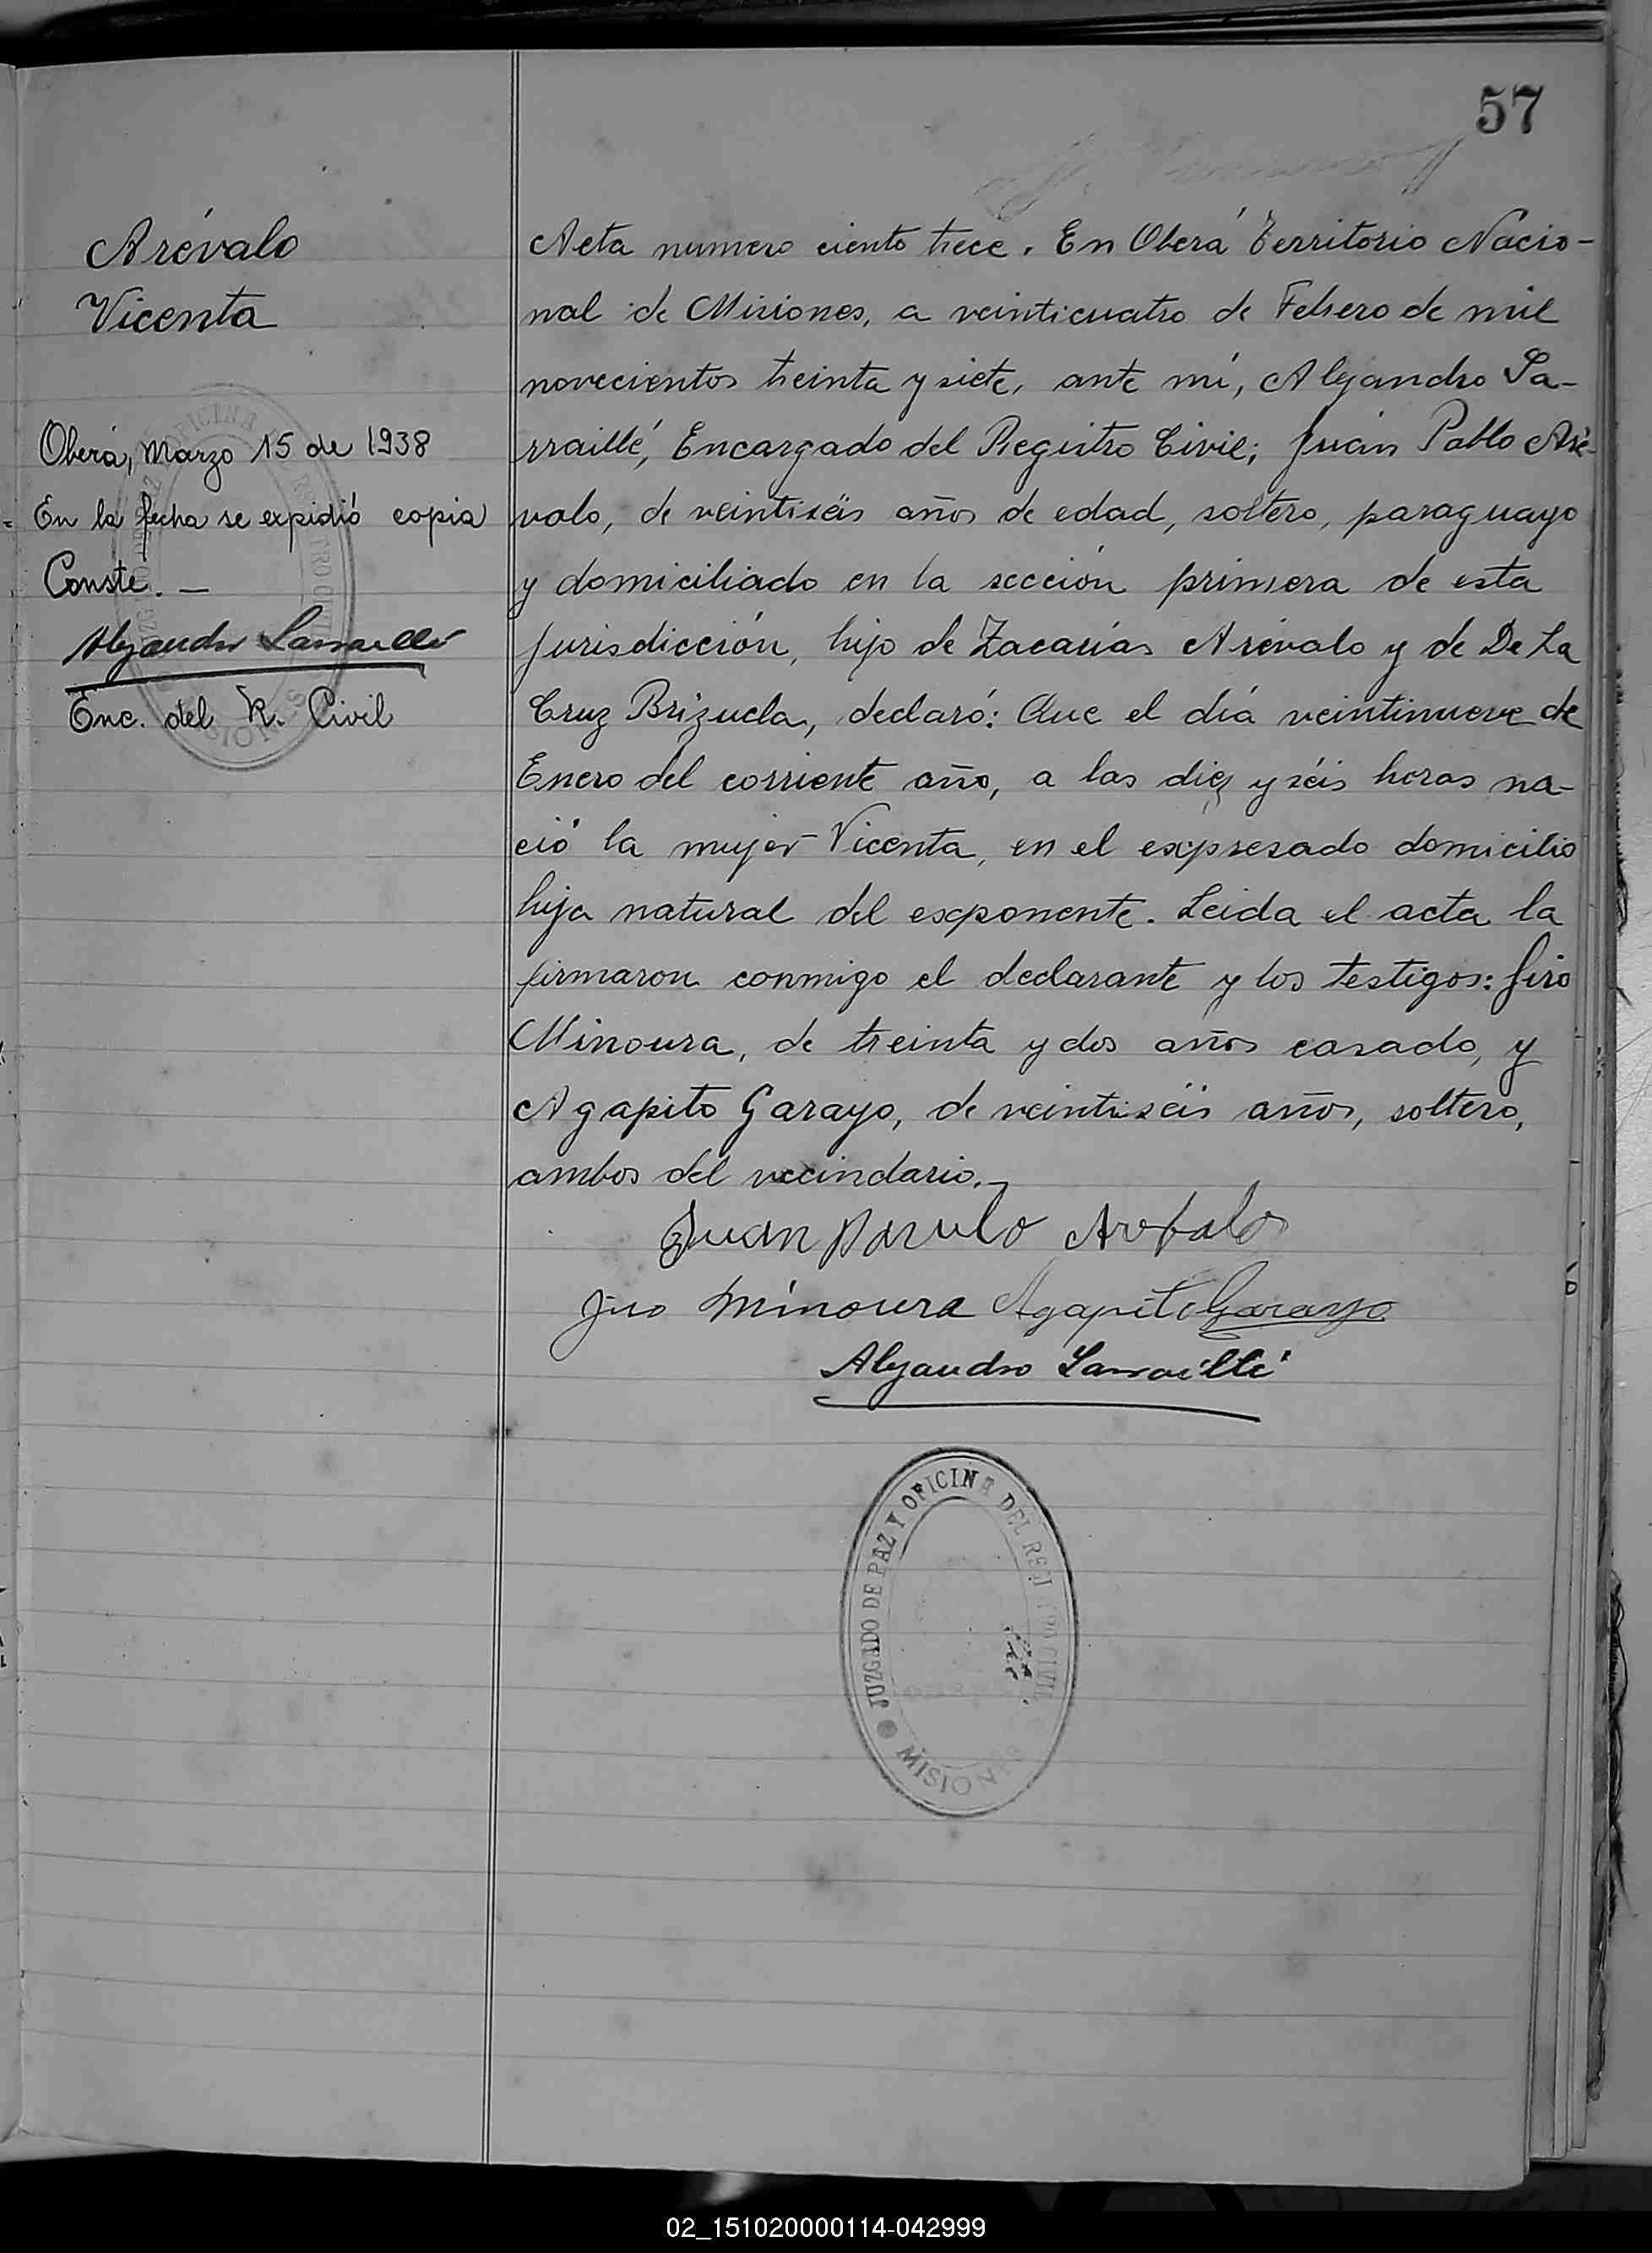 57
Arévalo
Vicenta
Oberá, Marzo 15 de 1938
En la fecha se expidió copia
Conste. —
Alejandro Larraillé
Enc. del R. Civil
Acta numero ciento trece. En Oberá Territorio Nacio-
nal de Misiones, a veinticuatro de Febrero de mil
novecientos treinta y siete, ante mí, Alejandro La-
rraillé, Encargado del Registro Civil; Juan Pablo Aré-
valo, de veintiséis años de edad, soltero, paraguayo
y domiciliado en la sección primera de esta
jurisdicción, hijo de Zacarías Arévalo y de De La
Cruz Brizuela, declaró: Que el día veintinueve de
Enero del corriente año, a las diez y séis horas na-
ció la mujer Vicenta, en el expresado domicilio
hija natural del exponente. Leida el acta la
firmaron conmigo el declarante y los testigos: Jiro
Minoura, de treinta y dos años casado, y
Agapito Garayo, de veintiséis años, soltero,
ambos del vecindario.-
Juan
Jiro Minoura Agapito Garayo
Alejandro Larraillé
JUZGADO DE PAZ Y OFICINA DEL REGISTRO CIVIL
MISIONES
02_151020000114-042999